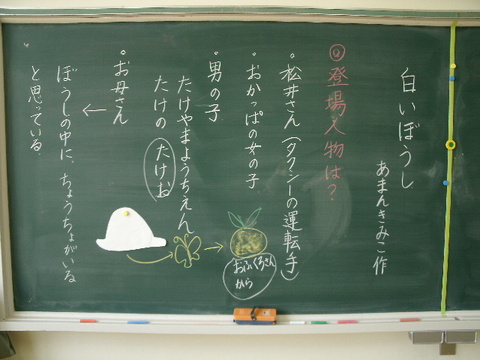 白いぼうし
あまんきみこ作
◎登場人物は？
・松井さん(タクシーの運転手)
・おかっぱの女の子
・男の子
たけやまようちえん
たけの たけお
・お母さん
ぼうしの中に、ちょうちょがいる
と思っている
おふくろさん
から